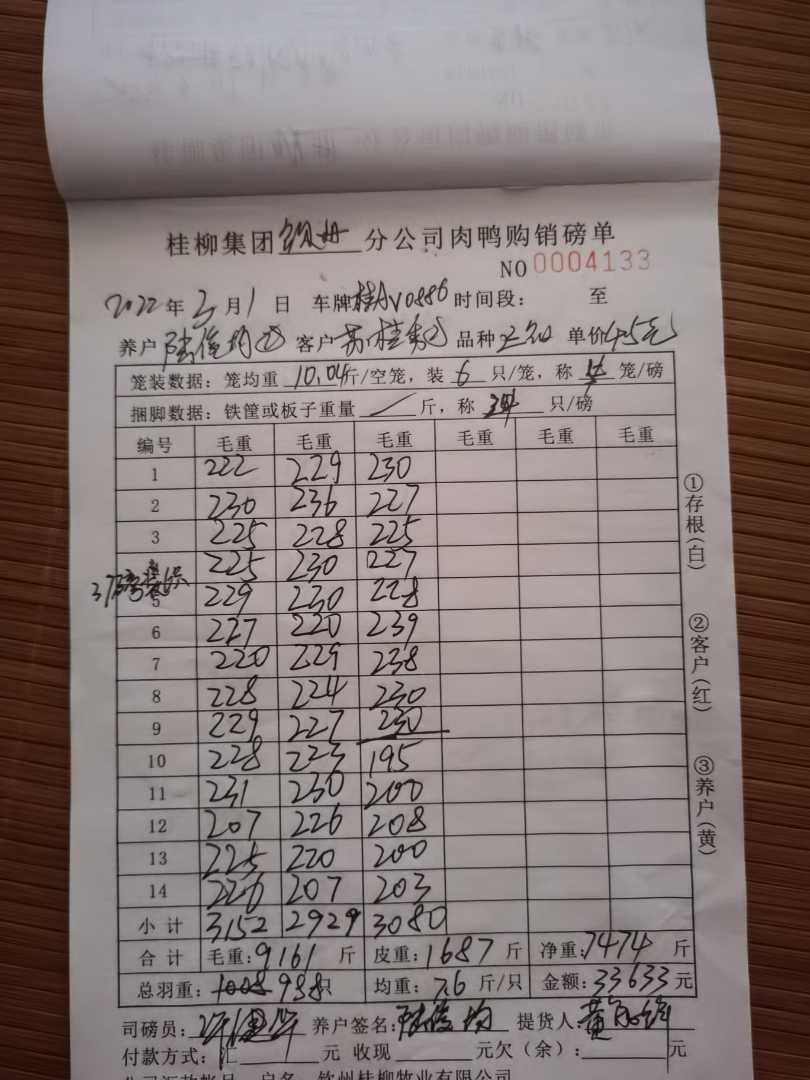 桂柳集团 钦州 分公司肉鸭购销磅单
NO 0004133
2022年3月1日 车牌桂AV0886时间段： 至
养户 陆俊均 客户 苏桂 品种 单价4.5元
笼装数据：笼均重 10.04斤/空笼，装 6 只/笼，称 4 笼/磅
捆脚数据：铁筐或板子重量 / 斤，称 只/磅
编号 毛重 毛重 毛重 毛重 毛重 毛重
1 222 229 230
2 230 236 227
3 225 228 225
225 230 227
5 229 230 228
6 227 220 239
7 220 229 238
8 228 224 230
9 229 227 230
10 228 223 195
11 231 230 200
12 207 226 208
13 225 220 200
14 226 207 203
小计 3152 2929 3080
合计 毛重：9161 斤 皮重：1687 斤 净重：7474 斤
总羽重：1008 988只 均重：7.6 斤/只 金额：33633元
司磅员： 养户签名：陆俊均 提货人：黄
付款方式：汇 元 收现 元欠（余）： 元
户名：钦州桂柳牧业有限公司
①存根(白)
②客户(红)
③养户(黄)